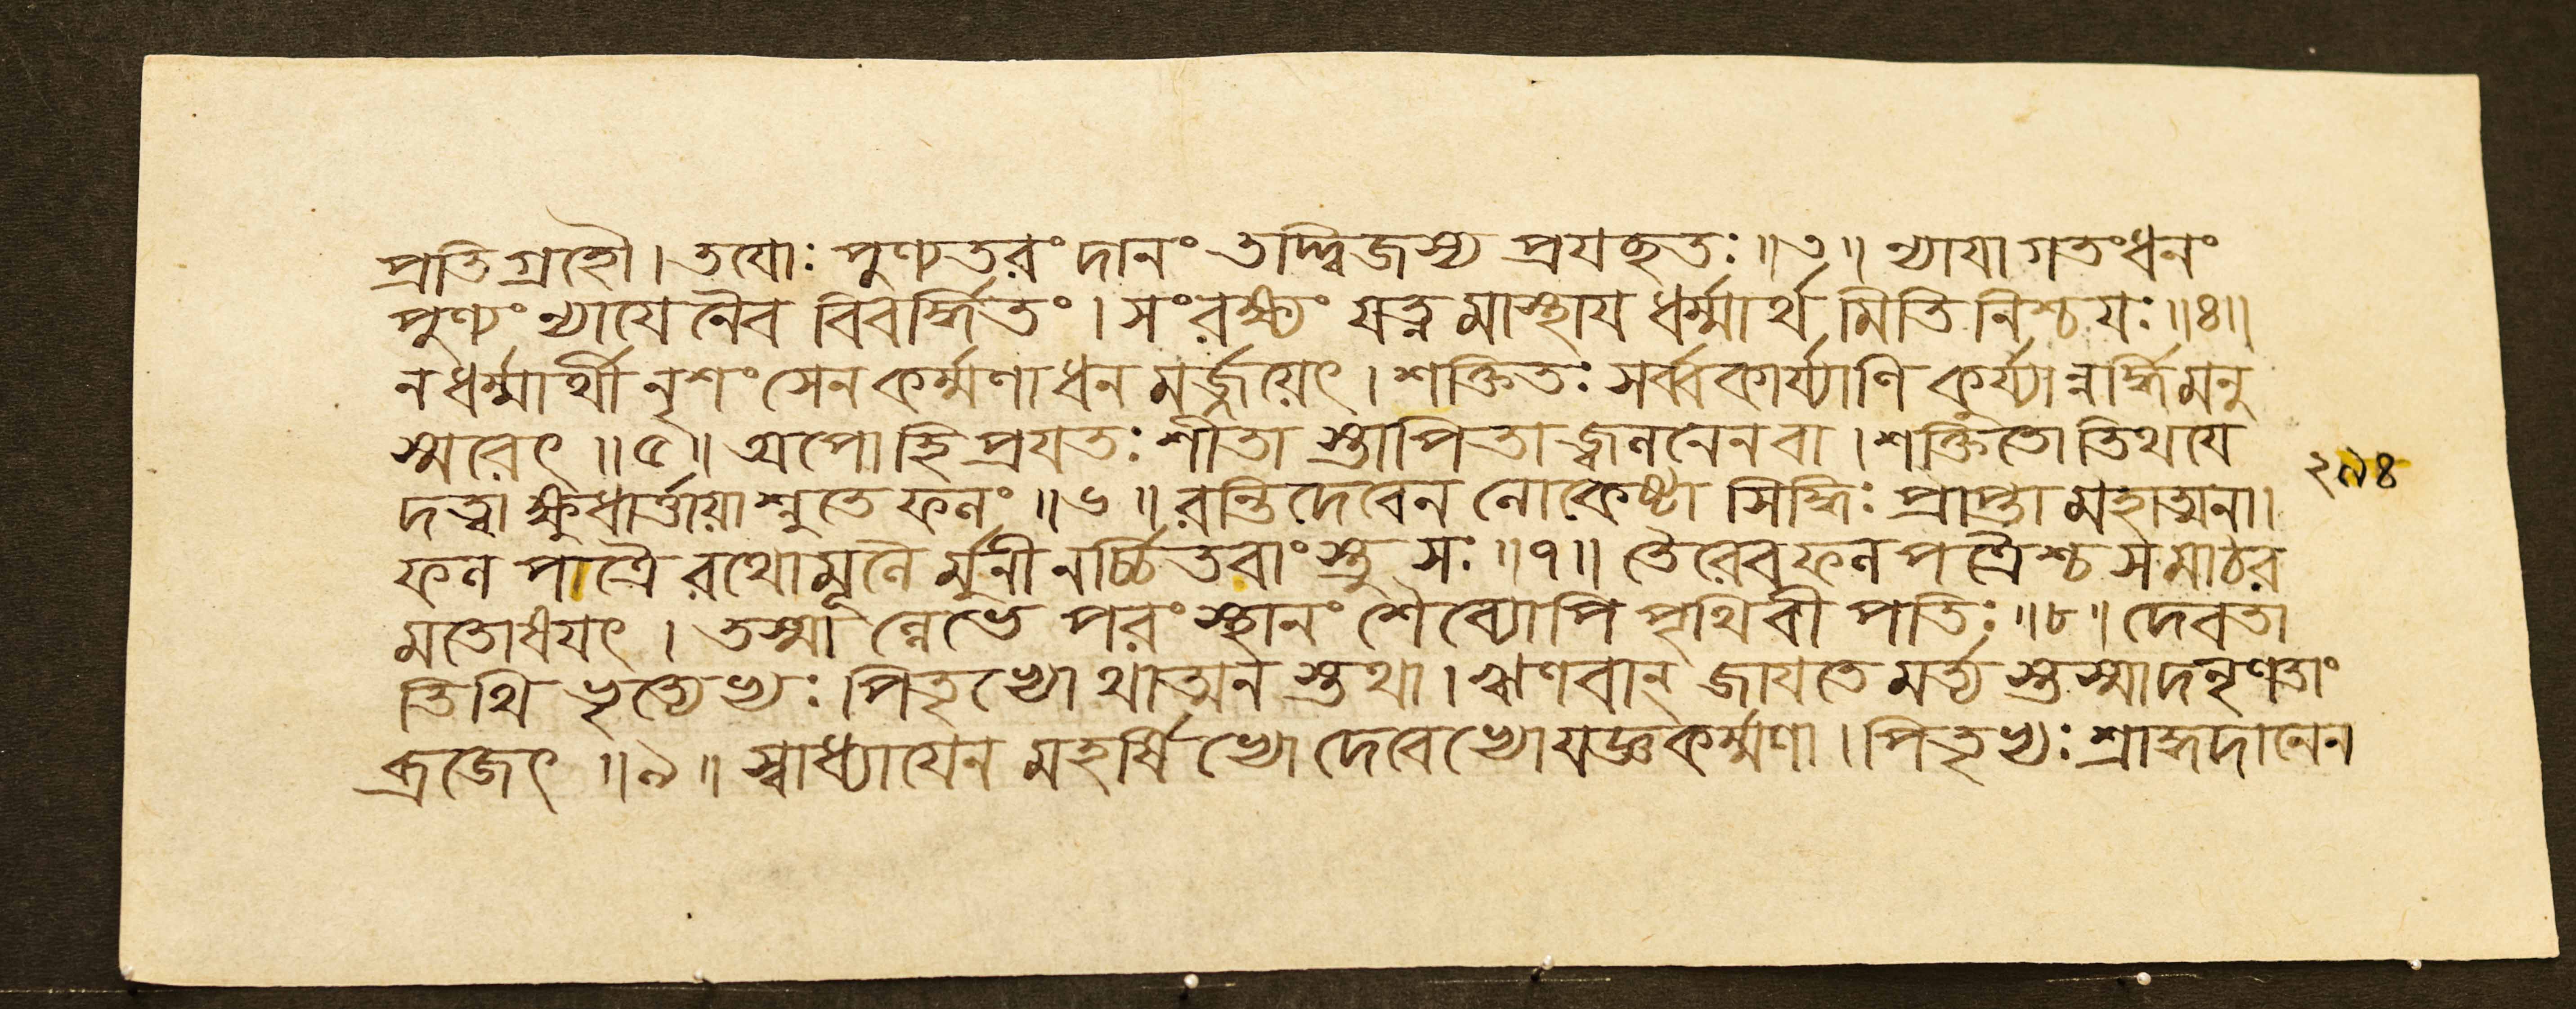 প্রতিগ্রহৌ। তযোঃ পুণ্যতরং দানং তদ্দ্বিজস্য প্রযচ্ছতঃ॥৩॥ ন্যাযাগতংধনং
পুণ্যং ন্যাযেনৈব বিবর্দ্ধিতং। সংরক্ষ্যং যত্নমাস্থায ধর্ম্মার্থমিতি নিশ্চযঃ॥৪॥
নধর্ম্মার্থী নৃশংসেনকর্ম্মণাধনমর্জ্জয়েৎ। শক্তিতঃ সর্ব্বকার্য্যাণি কুর্য্যান্নর্দ্ধিমনু
স্মরেৎ॥৫॥ অপোহি প্রযতঃ শীতা স্তাপিতা জ্বলনেনবা। শক্তিতোতিথযে
দত্বা ক্ষুধার্ত্তায়াশ্নুতে ফলং॥৬॥ রন্তিদেবেন লোকেষ্টা সিদ্ধিঃ প্রাপ্তা মহাত্মনা।
ফল পাত্রৈ রথোমূলৈ র্মুনীনর্চ্চিতবাংস্তু সঃ॥৭॥ তৈরেবফলপত্রৈশ্চ স মাঠর
মতোষযৎ। তস্মাল্লেভে পরংস্থানং শৈব্যোপি পৃথিবী পতিঃ॥৮॥ দেবতা
তিথি ভৃত্যেভ্যঃ পিতৃভ্যোথাত্মন স্তথা। ঋণবান্ জাযতে মর্ত্ত্য স্তস্মাদনৃণতাং
ব্রজেৎ॥৯॥ স্বাধ্যাযেন মহর্ষিভ্যো দেবেভ্যোযজ্ঞকর্ম্মণা। পিতৃভ্যঃ শ্রাদ্ধদানেন
২৭৪